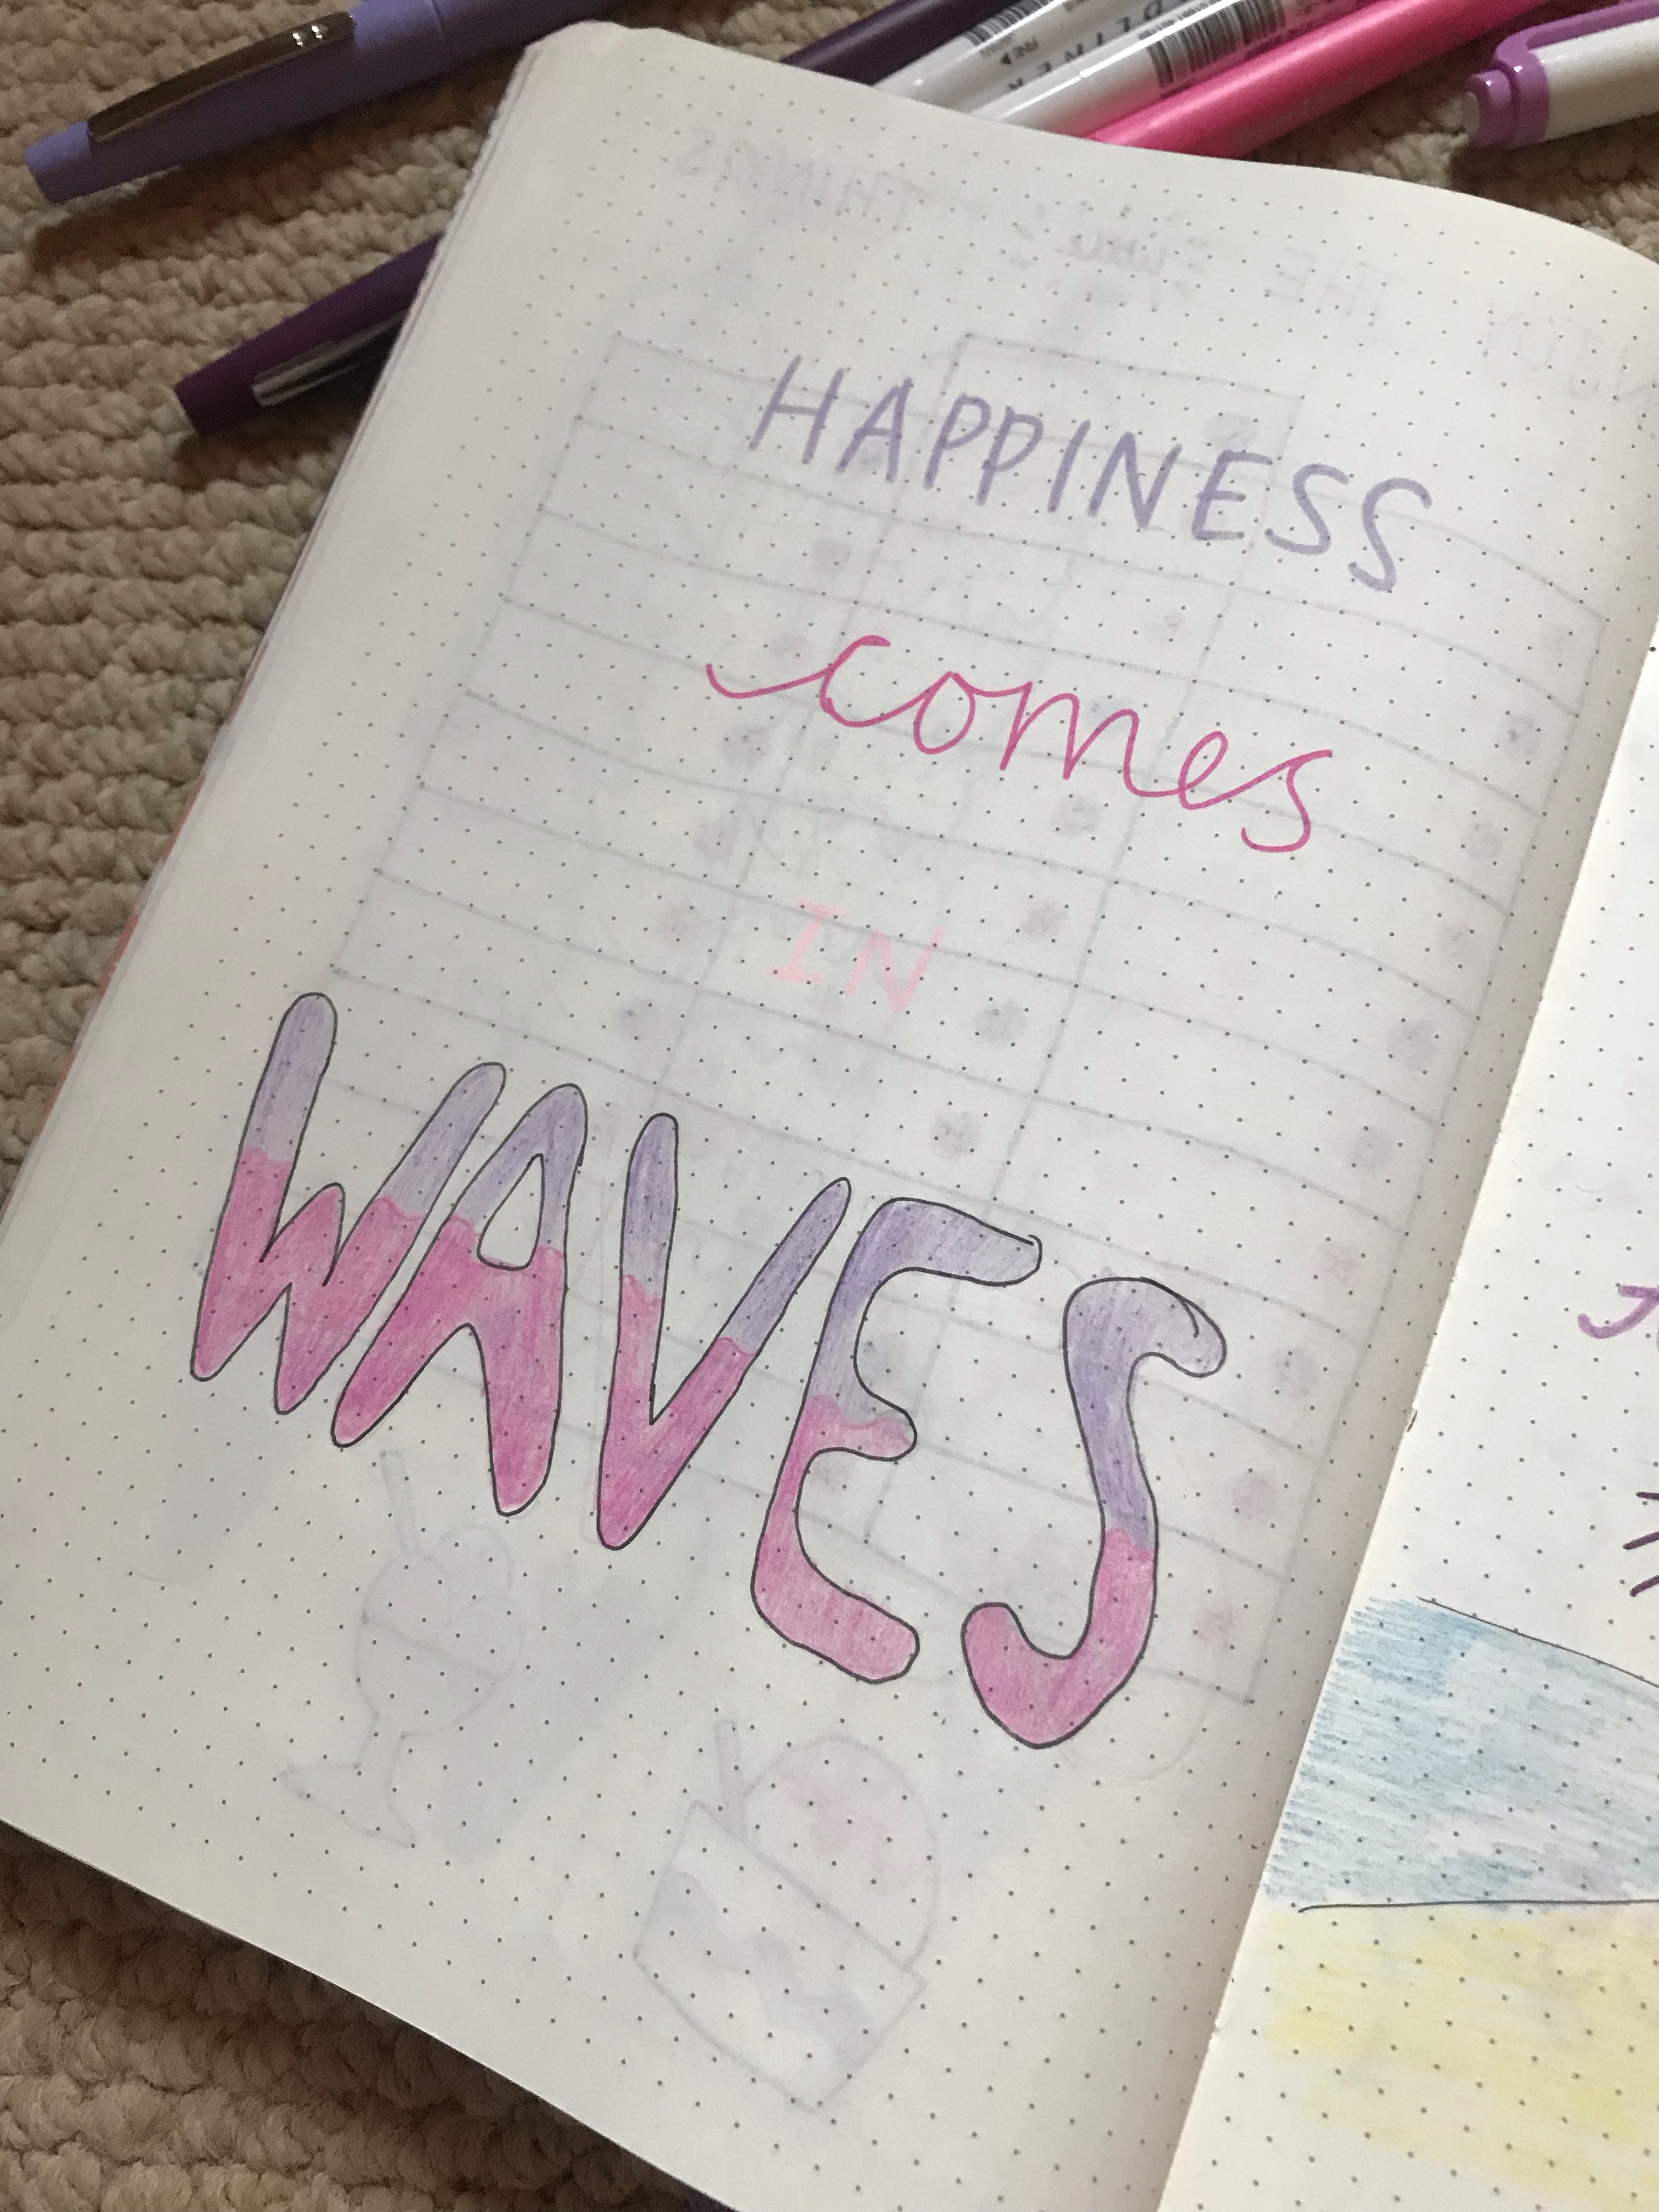 HAPPINESS
comes
IN
WAVES